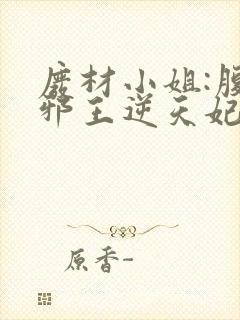 废材小姐:腹
邪王逆天妃
原香-